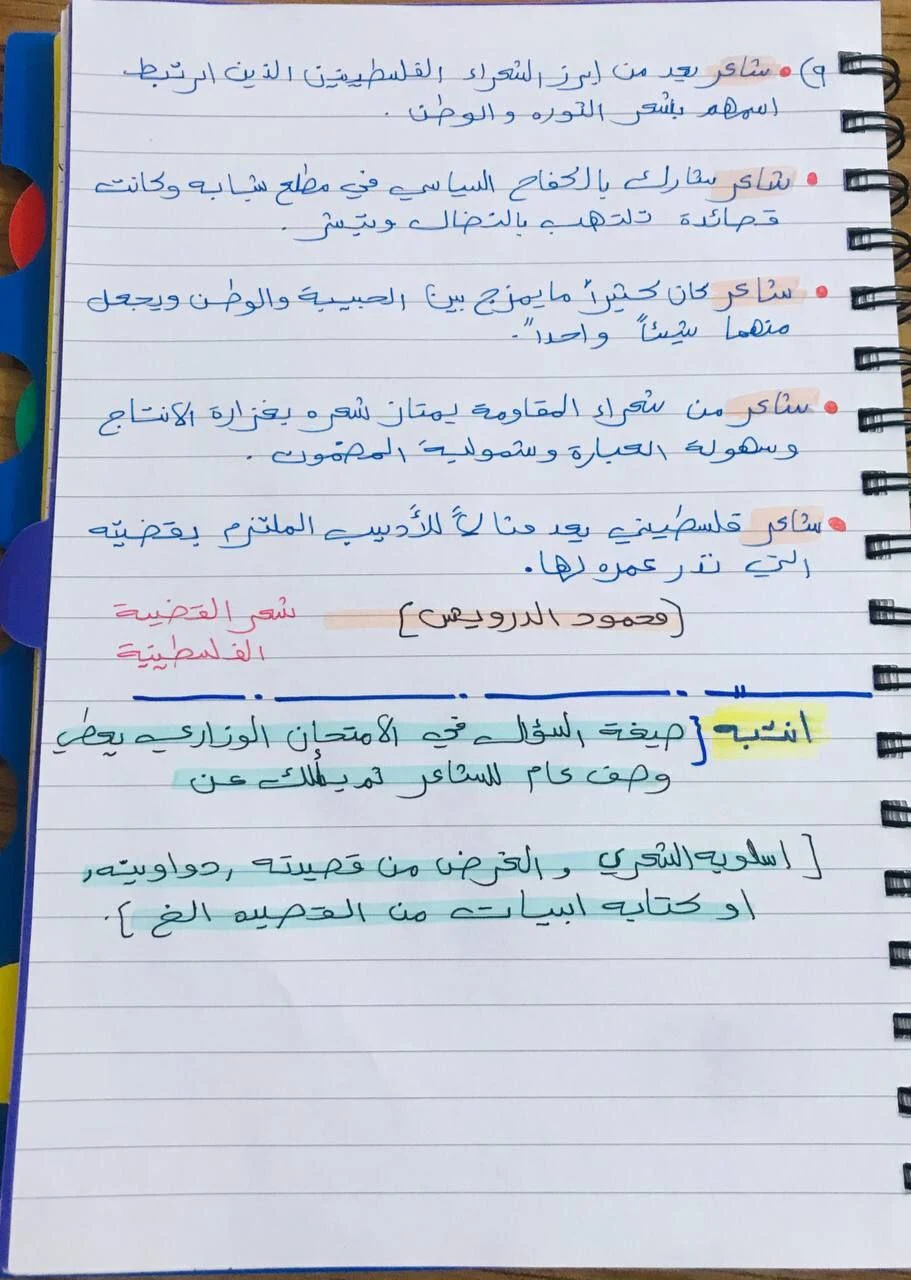 ٩) • شاعر يعد من ابرز الشعراء الفلسطينين الذين ارتبط
اسمهم بشعر الثوره والوطن .
• شاعر شارك بالكفاح السياسي في مطلع شبابه وكانت
قصائدة تلتهب بالنضال وتبشر .
• شاعر كان كثيراً ما يمزج بين الحبيبة والوطن ويجعل
منهما شيئاً واحداً .
• شاعر من شعراء المقاومة يمتاز شعره بغزارة الانتاج
وسهولة العبارة وشمولية المضمون .
• شاعر فلسطيني يعد مثالاً للأديب الملتزم بقضيته
التي نذر عمره لها .
[محمود الدرويش]
شعر القضية
الفلسطينية
انتبه [ صيغة السؤال في الامتحان الوزاري يعطي
وصف عام للشاعر ثم يسألك عن
[ اسلوبه الشعري و الغرض من قصيدته , دواوينه ,
او كتابه ابيات من القصيده الخ ] .